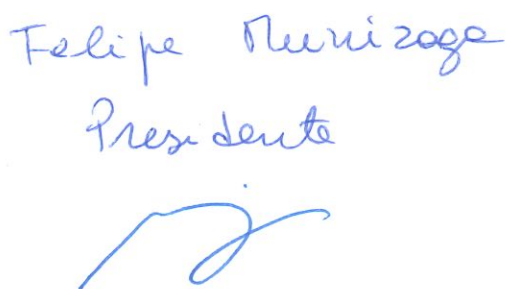 Felipe Munizaga
Presidente